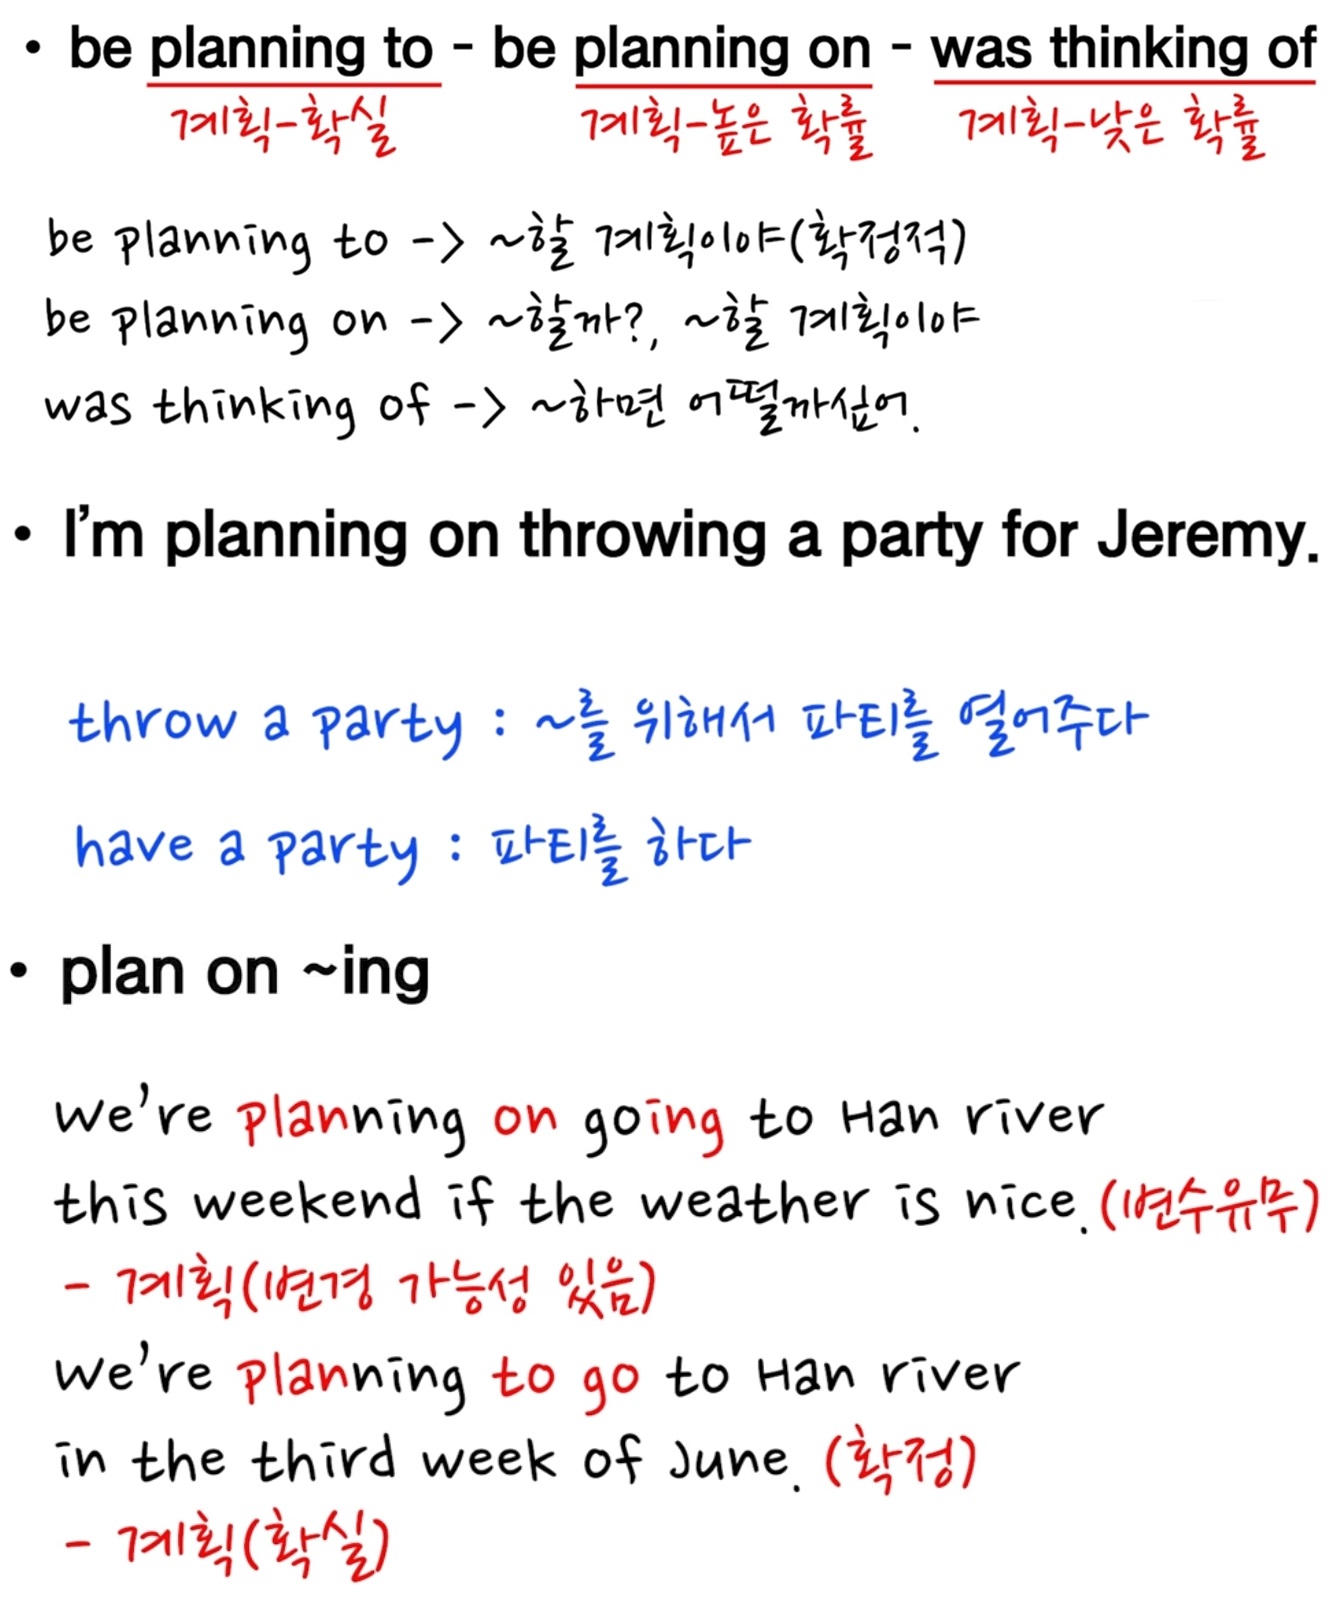 • be planning to - be planning on - was thinking of
계획-확실 계획-높은 확률 계획-낮은 확률
be planning to -> ~할 계획이야(확정적)
be planning on -> ~할까?, ~할 계획이야
was thinking of -> ~하면 어떨까싶어.
• I'm planning on throwing a party for Jeremy.
throw a party : ~를 위해서 파티를 열어주다
have a party : 파티를 하다
• plan on ~ing
We're planning on going to Han river
this weekend if the weather is nice.(변수유무)
- 계획(변경 가능성 있음)
We're planning to go to Han river
in the third week of June. (확정)
- 계획(확실)